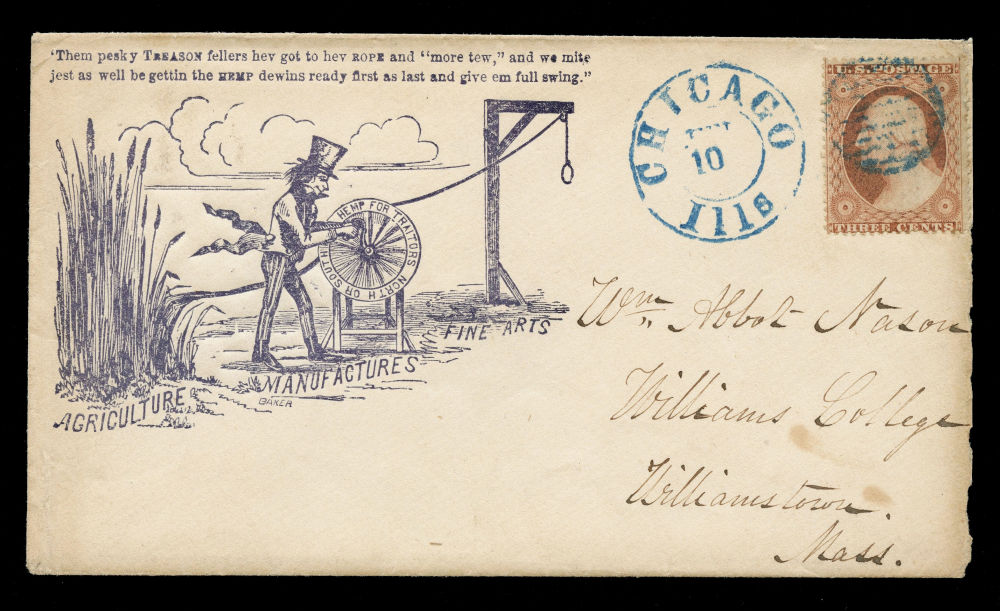 'Them pesky TREASON fellers hev got to hev ROPE and "more tew," and we mite
jest as well be gettin the HEMP dewins ready first as last and give em full swing."
HEMP FOR TRAITORS NORTH OR SOUTH
AGRICULTURE
MANUFACTURES
BAKER
FINE ARTS
CHICAGO
10
Ills
U.S. POSTAGE
THREE CENTS
Wm. Abbot Nason
Williams College
Williamstown.
Mass.